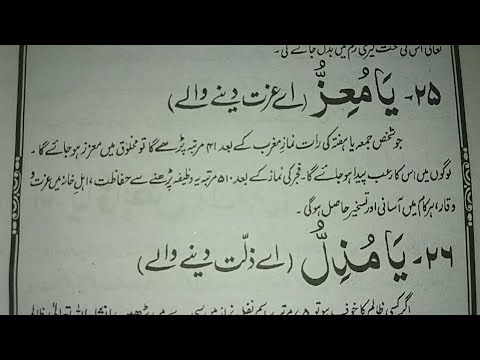 تعالیٰ اس کی سخت گیری نرم میں بدل جائے گی۔
۲۵۔ یَا مُعِزُّ (اے عزت دینے والے)
جو شخص جمعہ یا ہفتہ کی رات نماز مغرب کے بعد ۴۱ مرتبہ پڑھے گا تو مخلوق میں معزز ہو جائے گا۔
لوگوں میں اس کا رعب پیدا ہو جائے گا۔ فجر کی نماز کے بعد ۵۱۰ مرتبہ یہ وظیفہ پڑھنے سے حفاظت، اہل خانہ میں عزت و
وقار، ہر کام میں آسانی اور تسخیر حاصل ہوگی۔
۲۶۔ یَا مُذِلُّ (اے ذلّت دینے والے)
اگر کسی ظالم کا خوف ہو تو ۷۵ مرتبہ